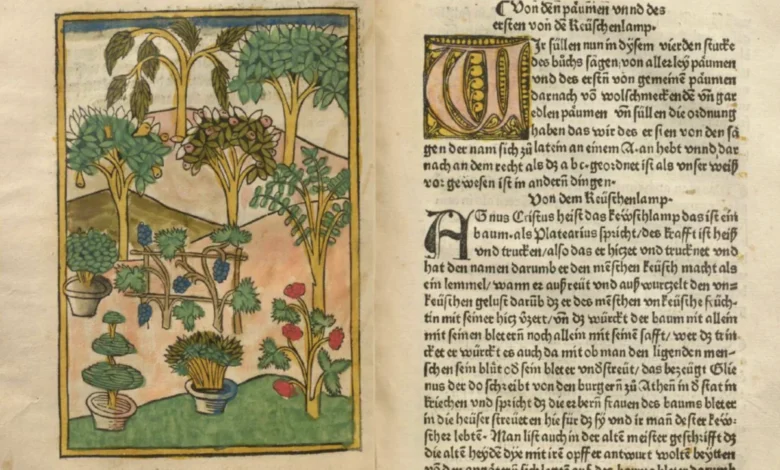 Von deñ päumen vnnd des
ersten von dē Keüschenlamp.
WIr süllen nun in dysem vierden stucke
des bůchs sagen von aller ley päumen
vnd des erstñ von gemeinē päumen
darnach võ wolschmeckendē vñ gar
edlen päumen vñ süllen die ordnung
haben das wir des ersten von den sa
gen der nam sich zů latein an einem A. an hebt vnnd dar
nach an dem recht als dz a bc. geordnet ist als vnser weiß
vor gewesen ist in anderñ dingen.
Von dem Keüschenlamp.
AGnus Cristus heist das kewschlamp das ist ein
baum. als Platearius spricht/ des krafft ist heiß
vnd trucken/ also das er hiczet vnd trucknet vnd
hat den namen darumb er den mēschen keüsch macht als
ein lemmel/ wann er außreüt vnd auß wurczelt den vn=
keüschen gelust darüb dz er des menschen vnkeüsche früch-
tin mit seiner hicz v̈zert/ vñ dz würckt der baum nit allein
mit seinen bletern noch allein mit seinē safft/ wer dz trin
cket er würckt es auch da mit ob man den ligenden men-
schen sein blüt od sein bleter vndstreüt/ das bezeügt Glie
nus der do schreibt von den burgerñ zů Athen in d stat in
kriechen vnd spricht dz die erberñ frauen des baums bleter
in die heüser streüeten hie für dz sy vnd ir man dester kew-
schez lebtē. Man list auch in der altē meister geschrifft dz
die altē heydē dye mit irē opffer antwurt woltē